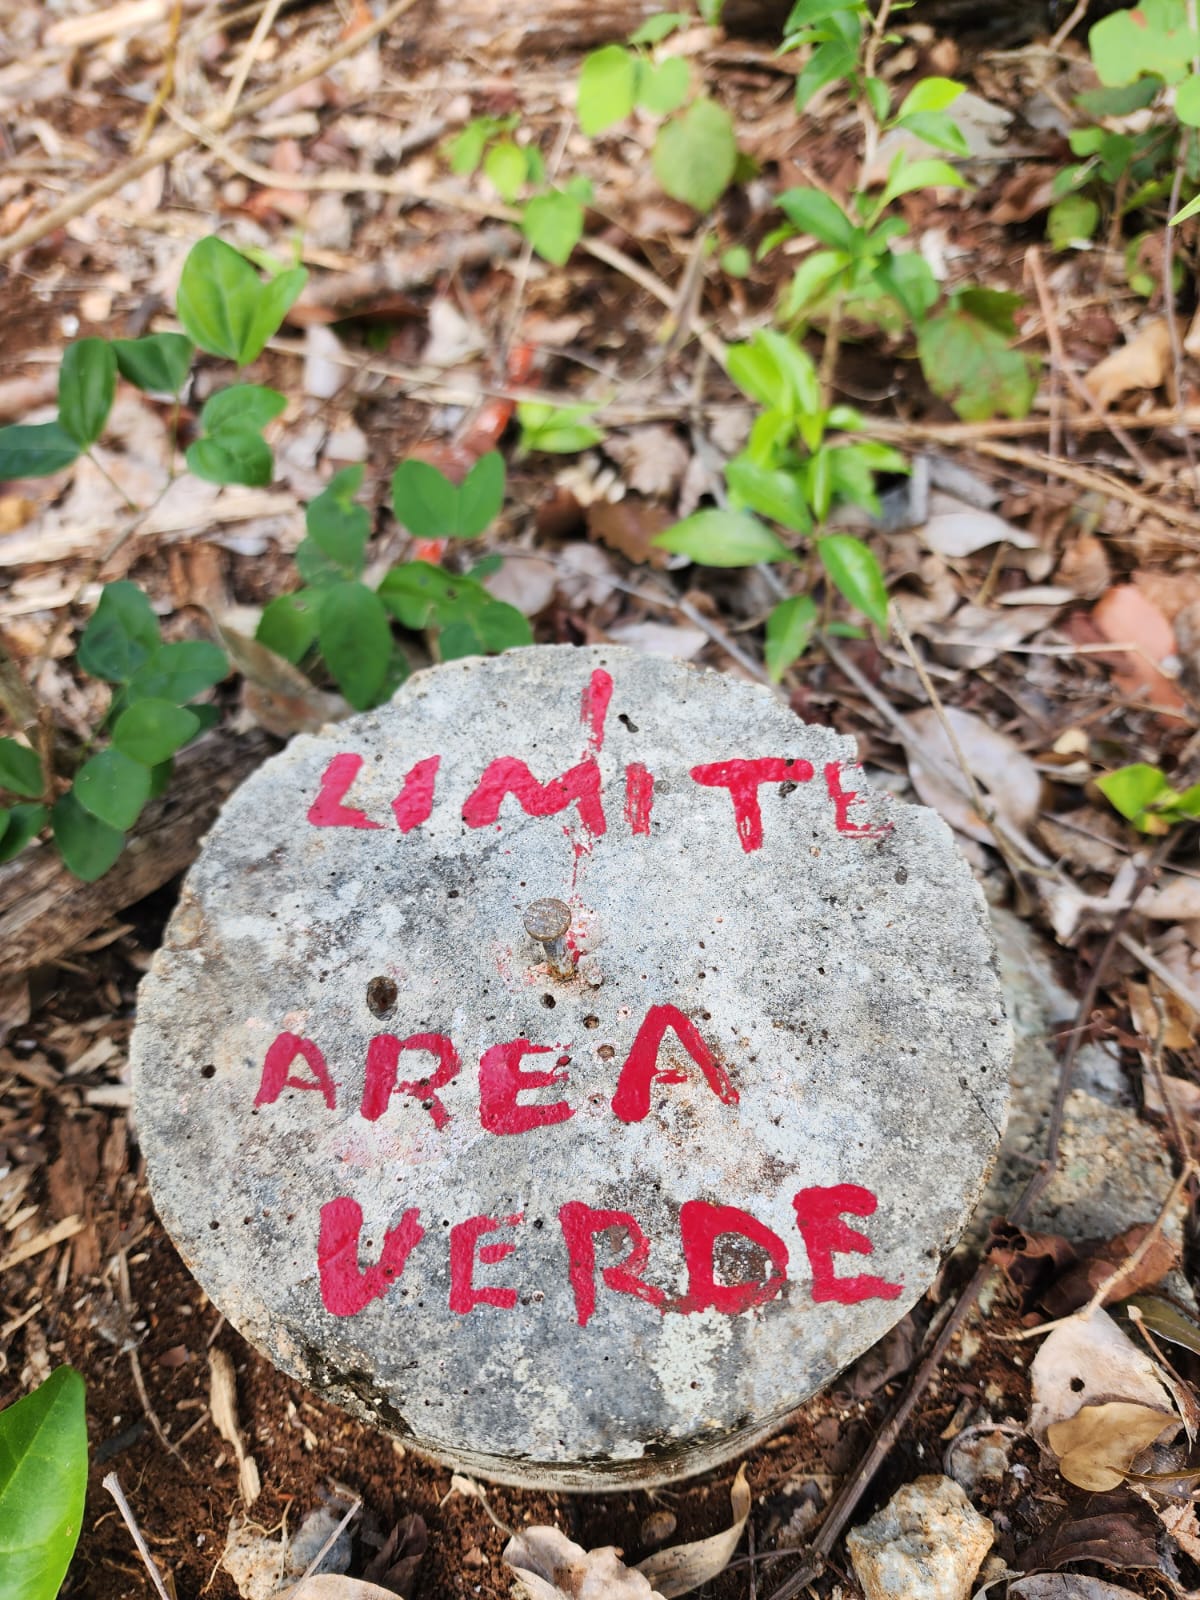 LIMITE
AREA
VERDE